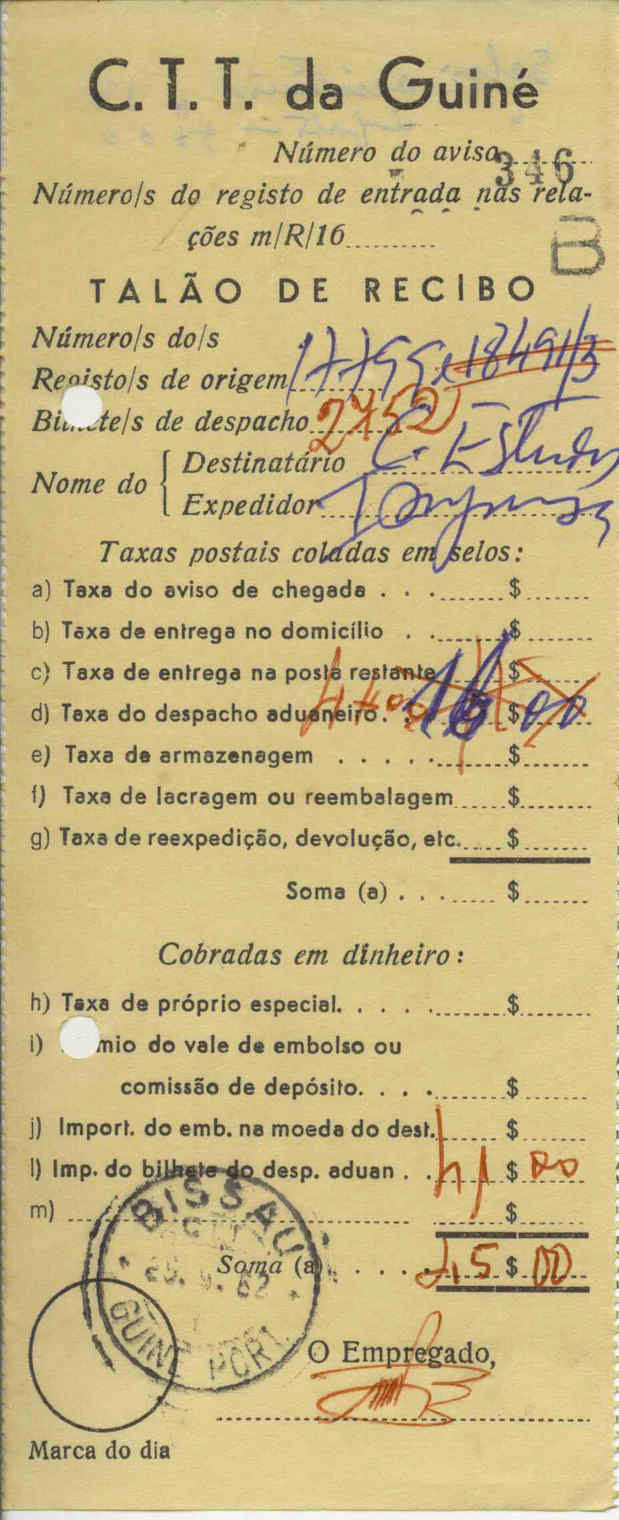 C. T. T. da Guiné
Número do aviso 346
Número/s do registo de entrada nas rela-
ções m/R/16
B
TALÃO DE RECIBO
Número/s do/s
Registo/s de origem
Bilhete/s de despacho 2752
Nome do { Destinatário
Expedidor
Taxas postais coladas em selos:
a) Taxa do aviso de chegada . . . $
b) Taxa de entrega no domicílio . . $
c) Taxa de entrega na posta restante $
d) Taxa do despacho aduaneiro . . $ 00
e) Taxa de armazenagem . . . . . $
f) Taxa de lacragem ou reembalagem $
g) Taxa de reexpedição, devolução, etc. $
Soma (a) . . . $
Cobradas em dinheiro:
h) Taxa de próprio especial. . . . . $
i) mio do vale de embolso ou
comissão de depósito. . . . $
j) Import. do emb. na moeda do dest. $
l) Imp. do bilhete do desp. aduan . . 41 $ 00
m) $
Soma (a) . . . . 45 $ 00
BISSAU
GUINÉ PORT.
O Empregado,
Marca do dia